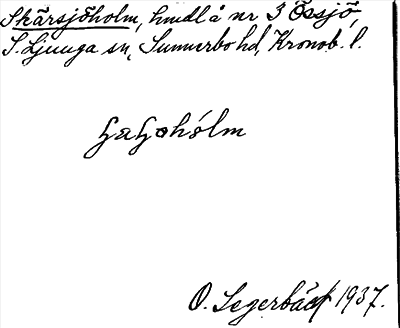 Skärsjöholm, hmdl å nr 3 Össjö,
S. Ljunga sn, Sunnerbo hd, Kronob. l.
O. Segerbäck 1937.